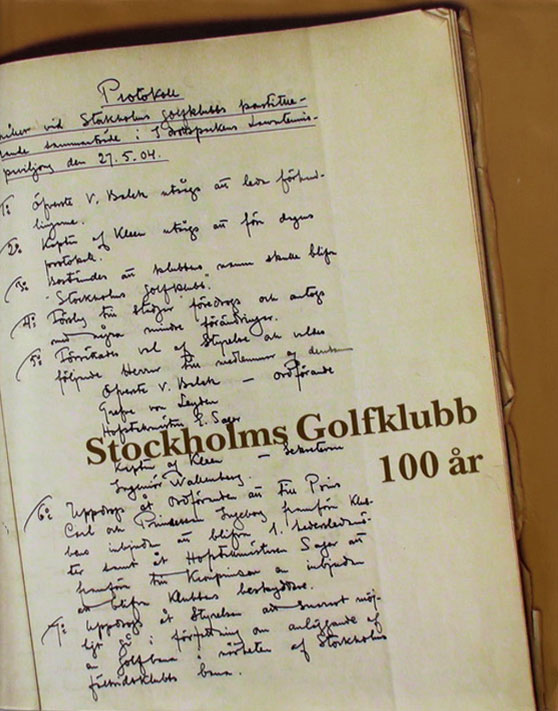 Protokoll
vid Stockholms golfklubbs konstitue-
rande sammanträde i Idrottsparkens Lawntennis-
paviljong den 27.5.04.
1: Öfverste V. Balck utsågs att leda förhand-
lingarne.
2: Kapten af Kleen utsågs att föra dagens
protokoll.
3: Bestämdes att klubbens namn skulle blifva
"Stockholms golfklubb".
4: Förslag till stadgar föredrogs och antogs
med några mindre förändringar.
5: Förrättades val af Styrelse och valdes
följande Herrar till medlemmar af densamma
Öfverste V. Balck — Ordförande
Grefve von Leyden
Hofstallmästare E. Sager
Stockholms Golfklubb
100 år
Kapten af Kleen — Sekreterare
Ingeniör Wallenberg.
6: Uppdrogs åt Ordföranden att till Prins
Carl och Prinsessan Ingeborg framföra Klub-
bens inbjudan att blifva 1. hedersledamö-
ter samt åt Hofstallmästaren Sager att
framföra till Kronprinsen en inbjudan
att blifva Klubbens beskyddare.
7: Uppdrogs åt Styrelsen att snarast möj-
ligt gå i författning om anläggande af
en golfbana i närheten af Stockholms
fältridtklubbs bana.